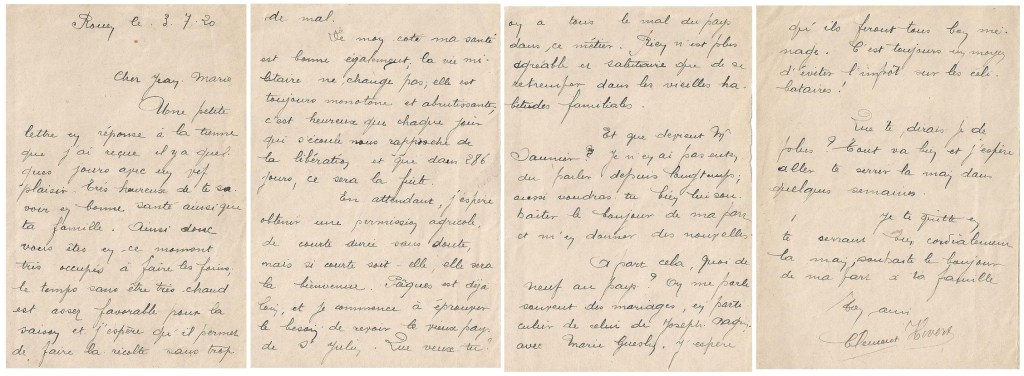 Rouen le 3.7.20
Cher Jean Marie
Une petite
lettre en réponse à la tienne
que j'ai reçue il y a quel
ques jours avec un vif
plaisir. Très heureux de te sa
voir en bonne santé ainsi que
ta famille. Ainsi donc
vous êtes en ce moment
très occupés à faire les foins,
le temps sans être très chaud
est assez favorable pour la
saison et j'espère qu'il permet
de faire la récolte sans trop
de mal.
De mon coté ma santé
est bonne également, la vie mi-
litaire ne change pas, elle est
toujours monotone et abrutissante,
c'est heureux que chaque jour
qui s'écoule nous rapproche de
la libération et que dans 286
jours, ce sera la fuite.
En attendant, j'espère
obtenir une permission agricole,
de courte durée sans doute,
mais si courte soit-elle, elle sera
la bienvenue. Pâques est déjà
loin, et je commence à éprouver
le besoin de revoir le vieux pays
de St . Que veux tu?
on a tous le mal du pays
dans, ce métier. Rien n'est plus
agréable et salutaire que de se
retremper dans les vieilles ha-
bitudes familiales.
Et que devient Mr
? Je n'en ai pas entendu
du parler depuis longtemps;
aussi voudras tu bien lui sou-
haiter le bonjour de ma part
et m'en donner des nouvelles.
A part cela, quoi de
neuf au pays? On me parle
souvent des mariages, en parti
culier de celui de Joseph
avec Marie . J'espère
qu'ils feront tous bon mé-
nage. C'est toujours un moyen
d'éviter l'impôt sur les céli-
bataires!
Que te dirais je de
plus? Tout va bien et j'espère
aller te serrer la main dans
quelques semaines.
! Je te quitte en
te serrant bien cordialement
la main, souhaite le bonjour
de ma part à ta famille
Ton ami
Clément